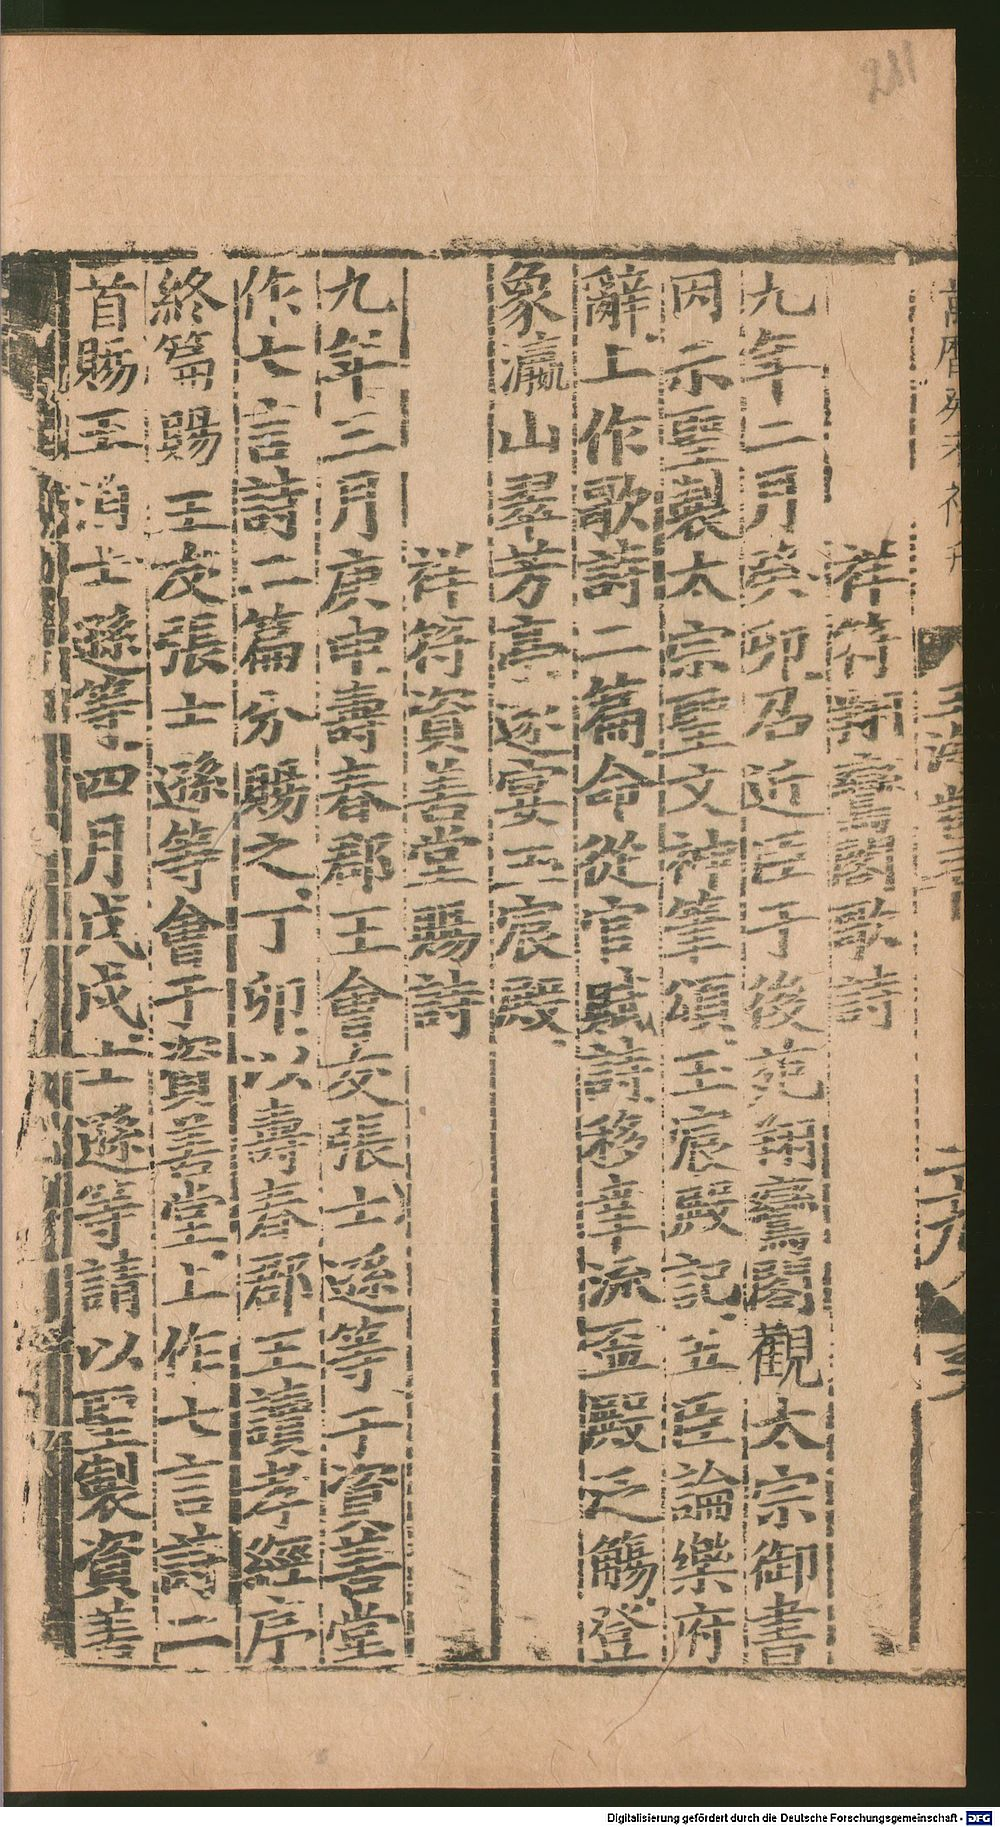 211
祥符翔鸞閣歌詩
九年二月癸卯召近臣于後苑翔鸞閣觀太宗御書
因示聖製太宗聖文神筆頌玉宸殿記五臣論樂府
辭上作歌詩二篇命從官賦詩移幸流盃殿泛觴登
象瀛山翠芳亭遂宴玉宸殿
祥符資善堂賜詩
九年三月庚申壽春郡王會友張士遜等于資善堂
作七言詩二篇分賜之丁卯以壽春郡王讀孝經序
終篇賜王友張士遜等會于資善堂上作七言詩二
首賜王消士遜等四月戊戌士遜等請以聖製資善
Digitalisierung gefördert durch die Deutsche Forschungsgemeinschaft - DFG